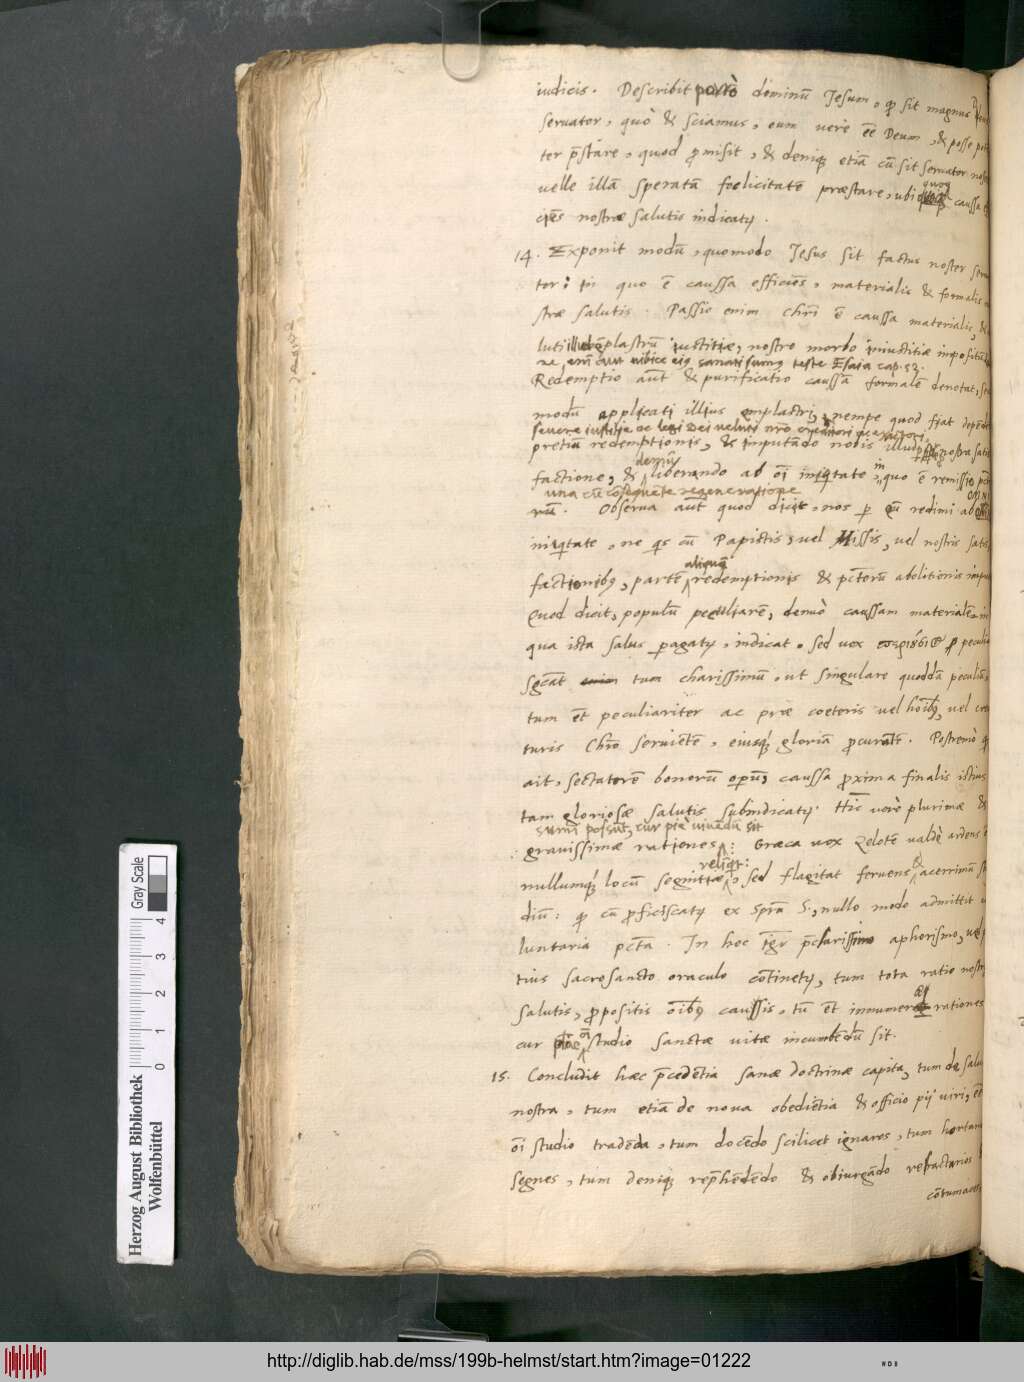 iudicis. Describit porrò dominū Jesum, qp sit magnus Deus
seruator, quò & sciamus, eum uerè eē Deum, & posse po
ter p̄stare, quod promisit, & deniq; etiā cū sit seruator noster
uelle illā speratā foelicitatē præstare, ubi quoq caussa effi
ciēs nostræ salutis indicatʒ.
14. Exponit modū, quomodo Jesus sit factus noster serua
tor: in quo ē caussa efficiēs, materialis & formalis no
stræ salutis. Passio enim Chri ē caussa materialis, &
luti emplastrū iustitiæ, nostro morbo iniustitiæ impositū
na enī aut uibice eiʒ sanati sumʒ teste Esaia cap. 53.
Redemptio aūt & purificatio caussā formalē denotat, seu
modū applicati illius emplastri, nempe quod fiat depēdē
seueræ iustitiæ ac legi Dei ueluti nr̄o creditori
pretiū redemptionis, & imputādo nobis illud nostra satis
factione, & demū liberando ab oī iniqtate, in quo ē remissio pctō
una cū cōsequēte regeneratione
rum. Obserua aūt quod dicit, nos p eū redimi ab omni
iniqtate, ne qs cū Papistis, uel Missis, uel nostris satis
factionibʒ, partē aliquā redemptionis & pctorū abolitionis impu
Quod dicit, populū peculiarē, denuò caussam materialē, in
qua ista salus pagatʒ, indicat. Sed uox περιούσιος p peculia
sgcāt tum charissimū, ut singulare quoddā peculiū,
tum ēt peculiariter ac præ coeteris uel hoībʒ, uel crea
turis Chrō seruiētē, eiusq; gloriā procurātē. Postremò q
ait, sectatorē bonorū opūʒ, caussa proxima finalis istius
tam gloriosæ salutis subindicatʒ. Hīc uerò plurimæ &
sumi possūt, cur piè uiuēdū sit
grauissimæ rationes: Græca uox Zelotē ualdè ardens
reliqt:
nullumq; locū segnitiæ, sed flagitat feruens & acerrimū stu
diū: qp cū proficiscatʒ ex Sprū S., nullo modo admittit uo
luntaria pctā. In hoc igr p̄clarissimo aphorismo, uel p
tius sacrosancto oraculo cōtinetʒ, tum tota ratio nostræ
salutis, propositis oībʒ caussis, tū ēt innumeræ rationes
cur oī studio sanctæ uitæ incumbēdū sit.
15. Concludit hæc p̄cedētia sanæ doctrinæ capita, tum de salu
nostra, tum etiā de noua obediētia & officio pij uiri, ēē
oī studio tradēda, tum docēdo scilicet ignaros, tum hortan
segnes, tum deniq; rephēdēdo & obiurgādo refractarios
cōtumaces
Gray Scale
0 1 2 3 4
Herzog August Bibliothek
Wolfenbüttel
http://diglib.hab.de/mss/199b-helmst/start.htm?image=01222